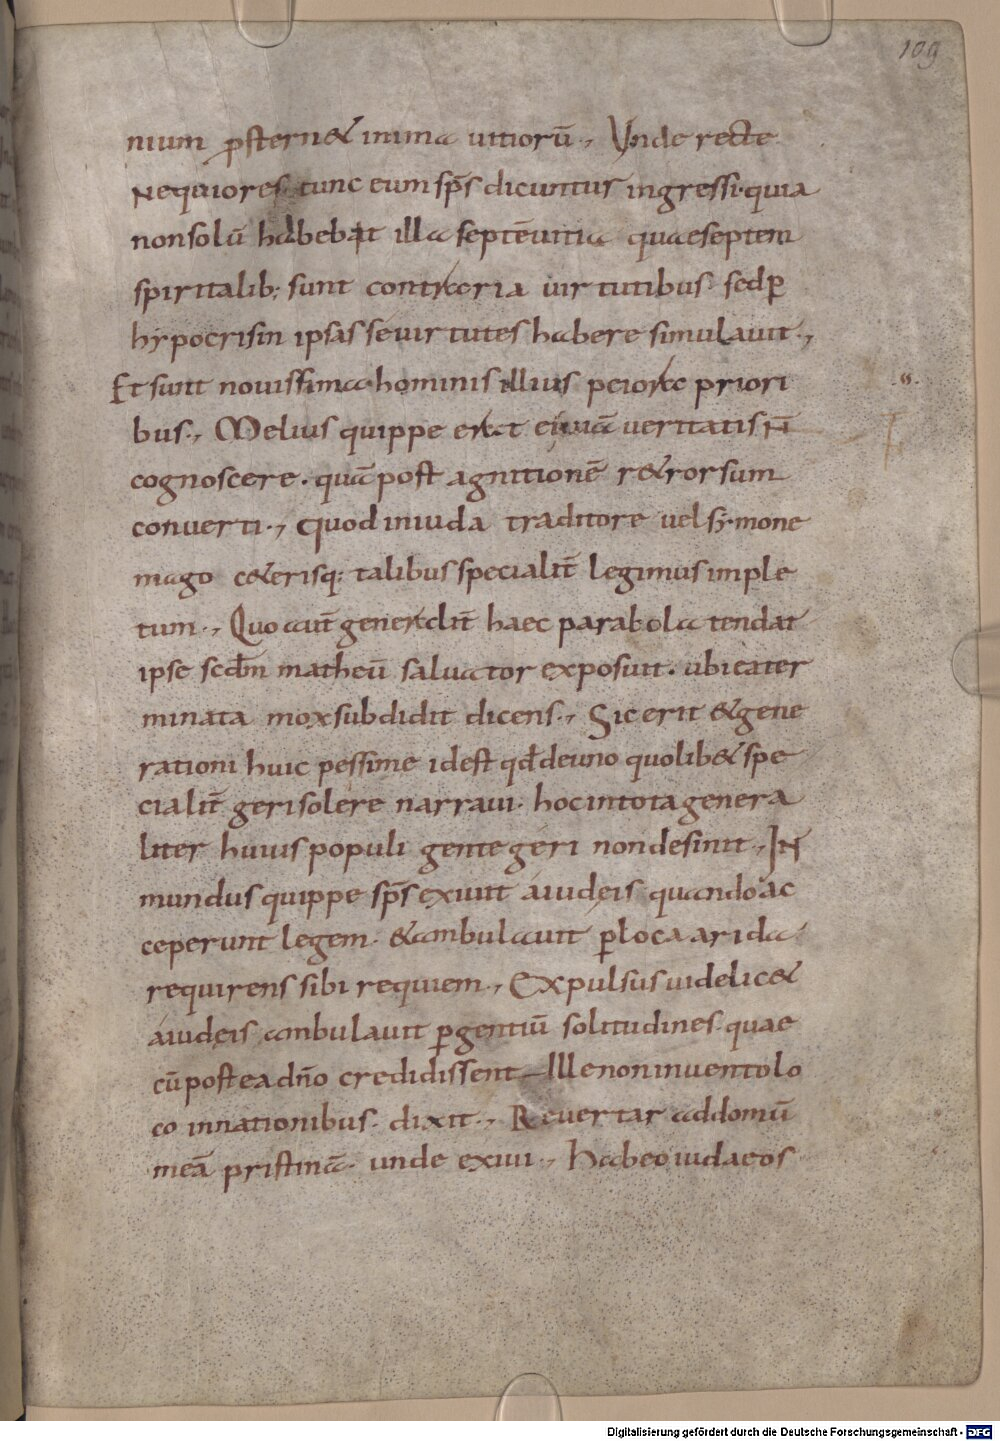 109
nium ꝓstern& inima uitiorū., Vnde recte
Nequiores tunc eum sp̄s dicuntur ingressi. quia
nonsolū habebat illa septē uitia quaeseptem
spiritalib; sunt contraria uirtutibus sedꝑ
hypocrisin ipsas seuirtutes habere simulauit.,
Et sunt nouissima hominis illius peiora priori
bus., Melius quippe erat eī uiā ueritatis N̄
cognoscere. quā post agnitionē r&rorsum
conuerti., Quod iniuda traditore uel symone
mago c&erisq; talibus specialit̄ legimus imple
tum., Quo aut̄ generalit̄ haec parabola tendat
ipse scdm̄ matheū saluator exposuit. ubi eater
minata mox subdidit dicens., Sic erit & gene
rationi huic pessime idest qđ deuno quolib& spe
cialit̄ geri solere narraui. hoc intota genera
liter huius populi gente geri non desinit., IN
mundus quippe sp̄s exiuit áiudęis quando ac
ceperunt legem. & ambulauit ꝑloca arida
requirens sibi requiem., Expulsus uidelic&
áiudęis ambulauit ꝑgentiū solitudines. quae
cū postea dn̄o credidissent Ille non inuento lo
co innationibus. dixit., Reuertar ad domū
meā pristinā. unde exiui., Habeo iudaeos
Digitalisierung gefördert durch die Deutsche Forschungsgemeinschaft - DFG